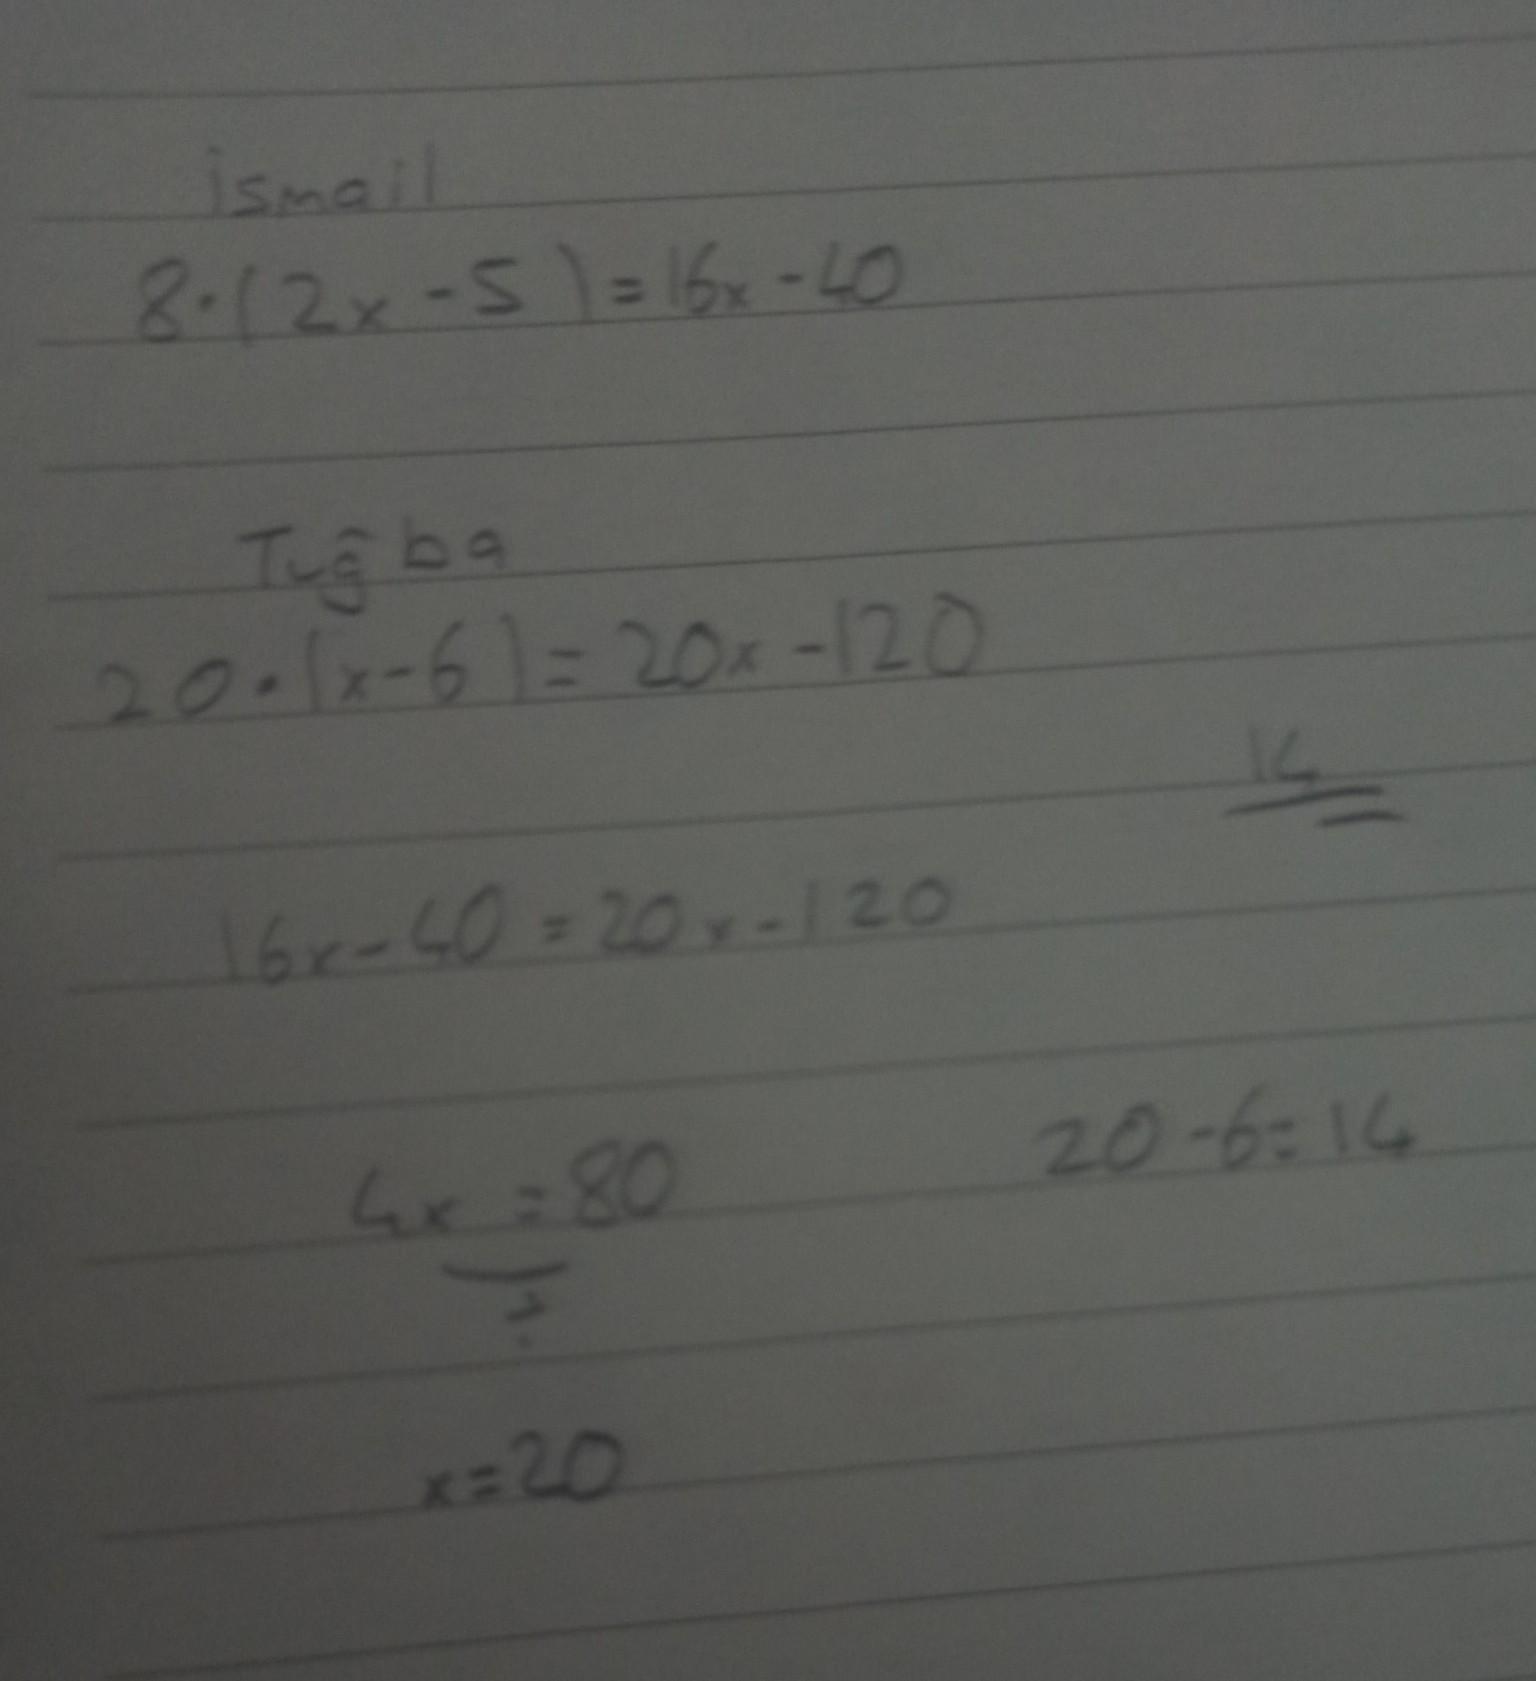 ismail
8·(2x-5)=16x-40
Tuğba
20·(x-6)=20x-120
14
16x-40=20x-120
4x=80
20-6=14
x=20